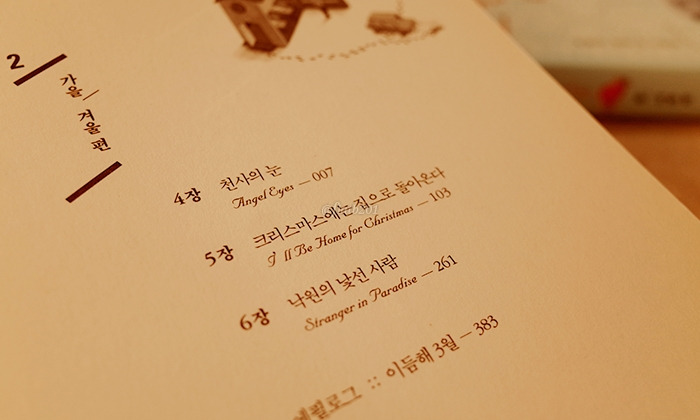 2
가을/겨울 편
4장 천사의 눈
Angel Eyes — 007
5장 크리스마스에는 집으로 돌아온다
I'll Be Home for Christmas — 103
6장 낙원의 낯선 사람
Stranger in Paradise — 261
에필로그 :: 이듬해 3월 — 383